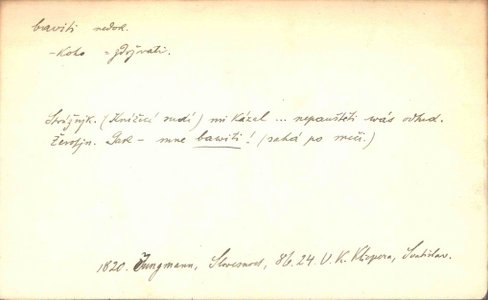 baviti nedok.
-Koho = zdržvati.
Strážnjk. (Knížecí rudí) mi kázal ... nepauštěti wás odtud.
Žerotjn. Gak - mne bawiti! (sahá po meči.)
1820. Jungmann, Slovesnost, 86.24. V. K. Klicpera, Svatislav.